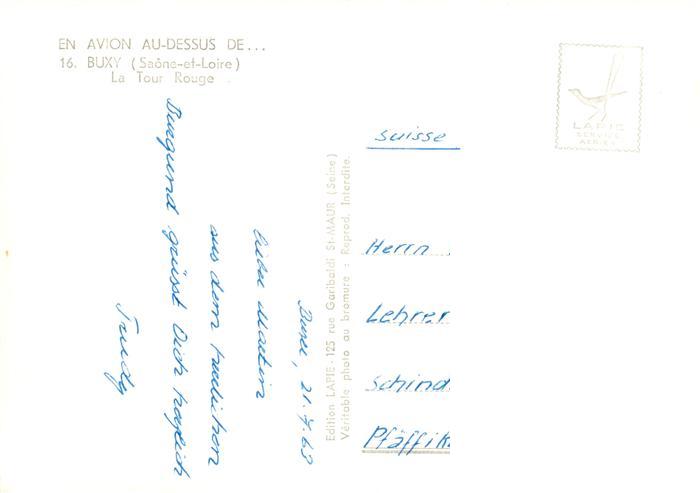 EN AVION AU-DESSUS DE...
16. BUXY (Saône-et-Loire)
La Tour Rouge
LAPIE
SERVICE
AERIEN
21.7.63
Lieber Martin
aus dem
Burgund grüsst Dich herzlich
Trudy
Edition LAPIE - 125 rue Garibaldi St-MAUR (Seine)
Véritable photo au bromure : Reprod. Interdite.
Suisse
Herrn
Lehrer
Schind
Pfäffik